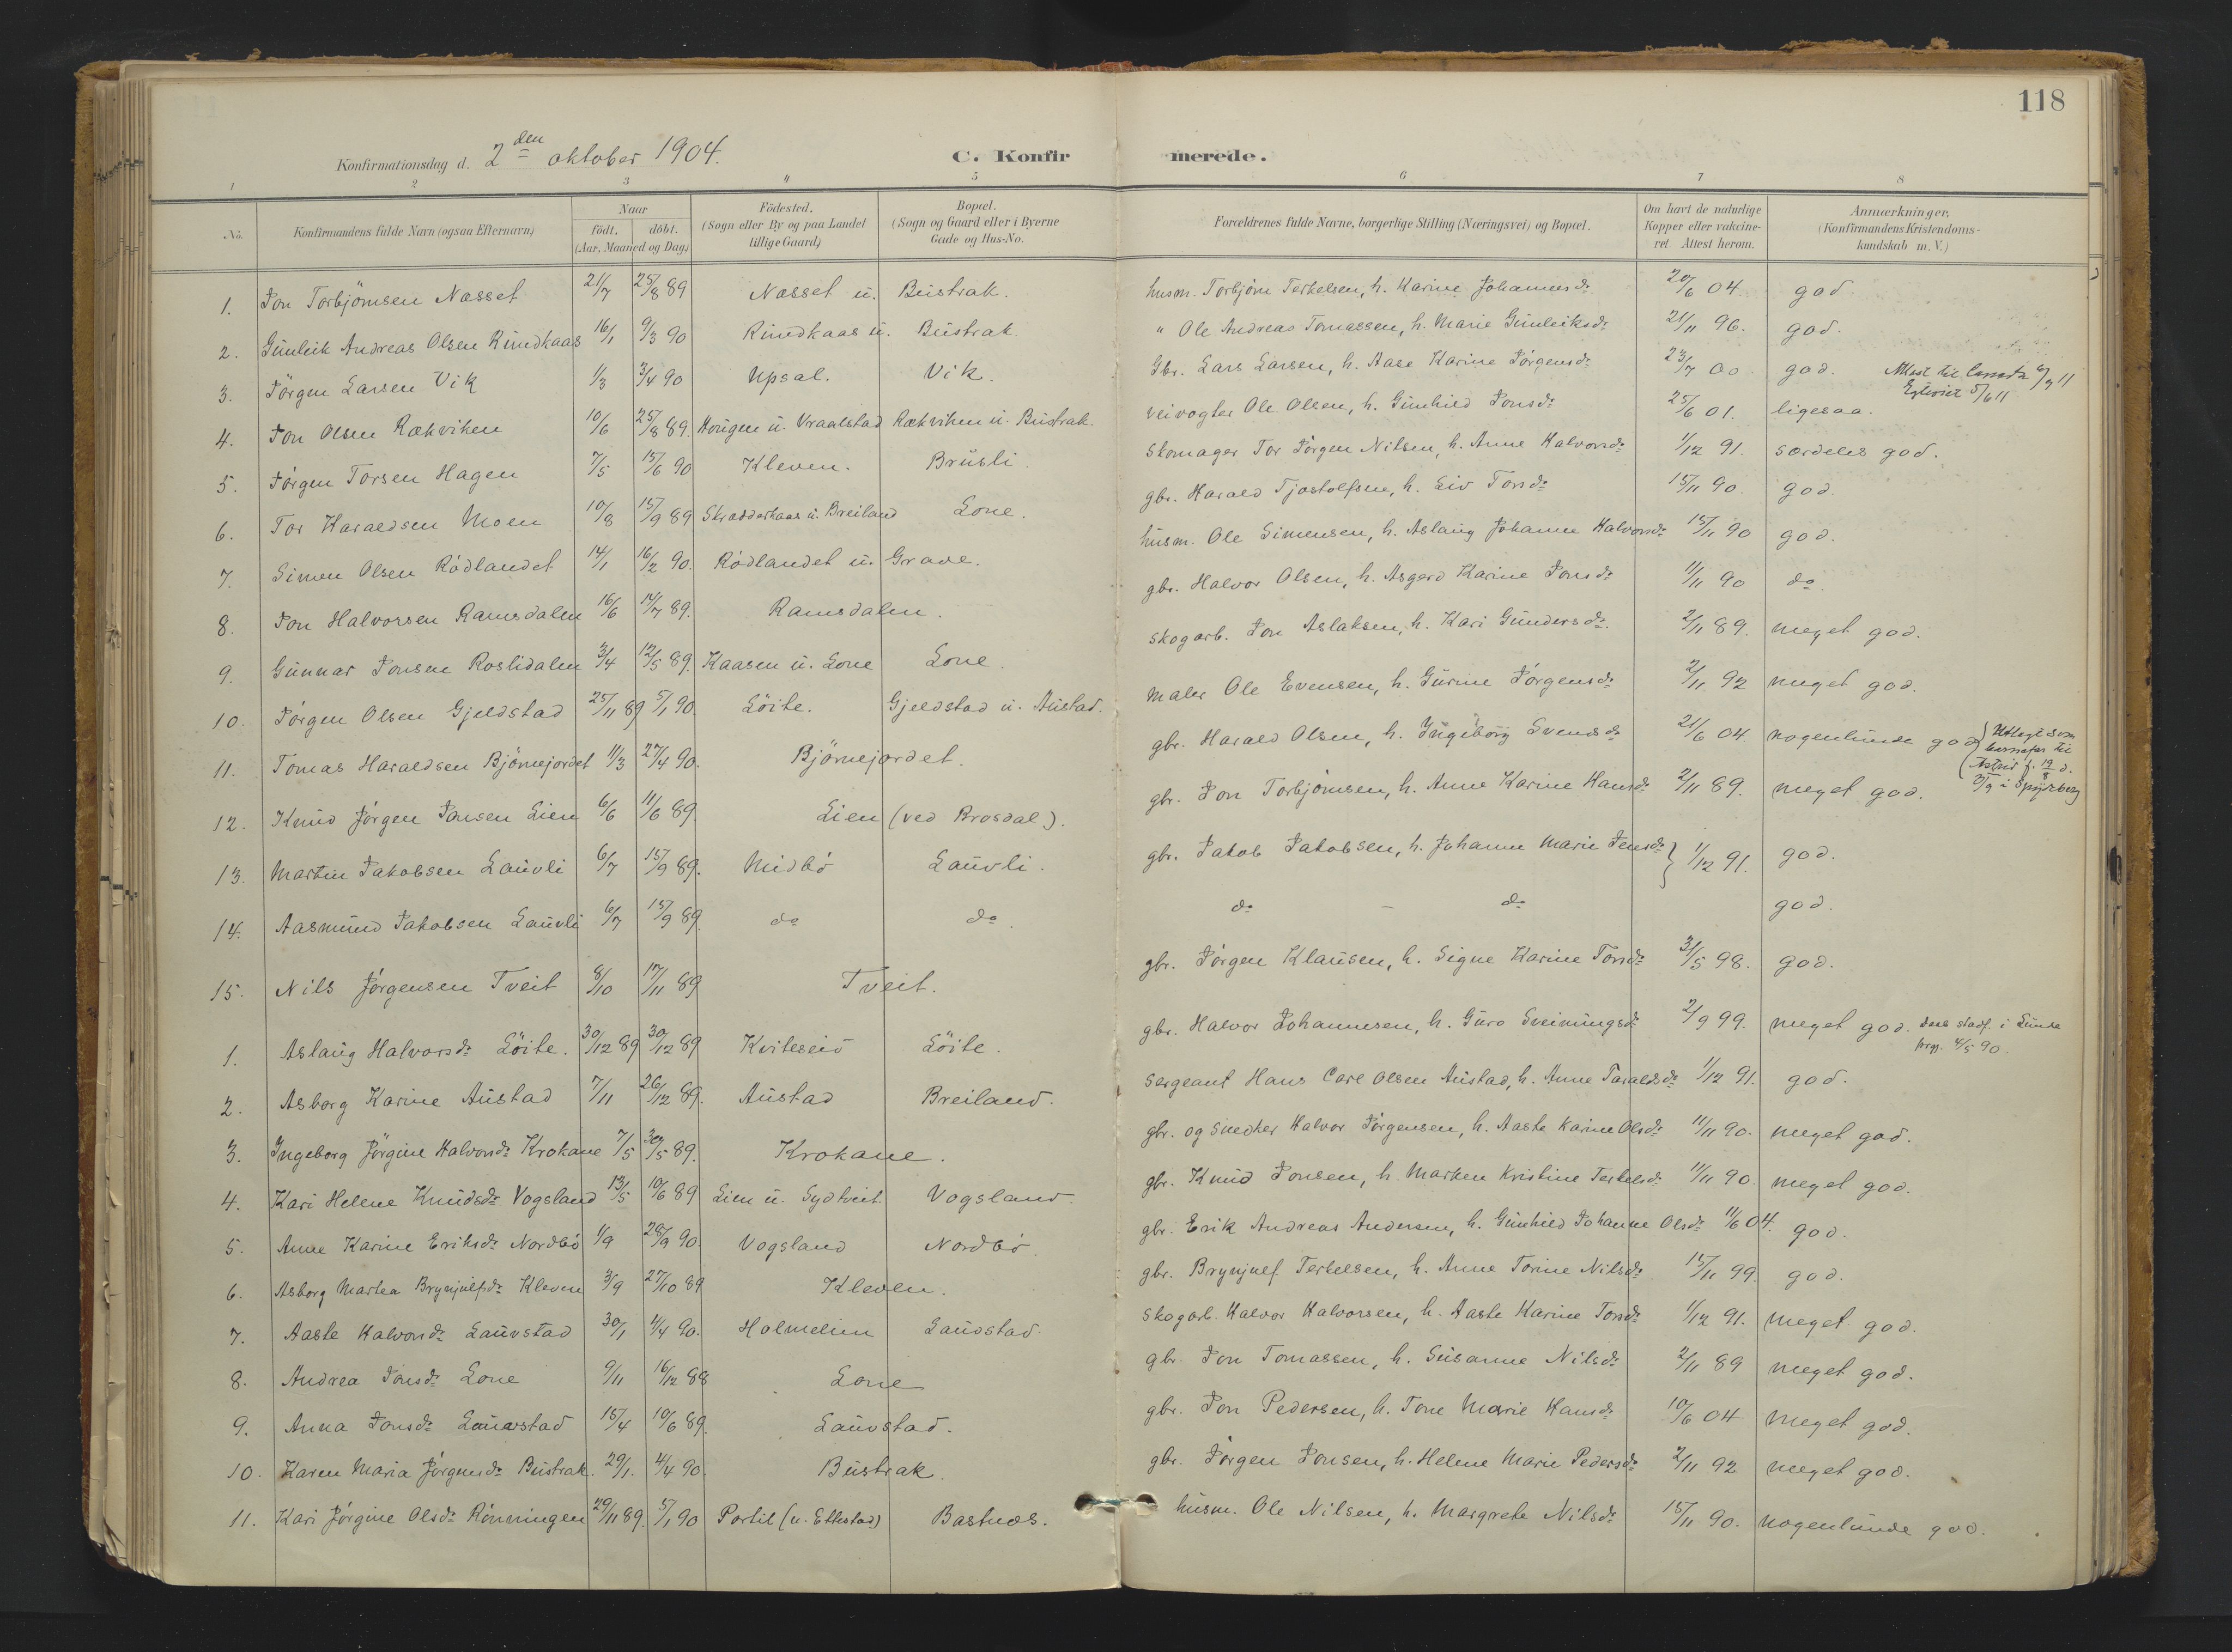 118
Konfirmationsdag d. 2den oktober 1904. C. Konfirmerede.
1 2 3 4 5 6 7 8
No. Konfirmandens fulde Navn (ogsaa Efternavn) Naar født. døbt. (Aar, Maaned og Dag) Födested. (Sogn eller By og paa Landet tillige Gaard) Bopæl. (Sogn og Gaard eller i Byerne Gade og Hus-No. Forældrenes fulde Navne, borgerlige Stilling (Næringsvei) og Bopæl. Om havt de naturlige Kopper eller vakcineret. Attest herom. Anmærkninger. (Konfirmandens Kristendomskundskab m. V.)
1. Jon Torbjörnsen Næsset 21/7 25/8 89 Næsset u. Bustrak. husm. Torbjörn Terkelsen, h. Karine Johannesd. 20/6 04. god.
2. Gunleik Andreas Olsen Rundkaas 16/1 9/3 90 Rundkaas u. Bustrak. " Ole Andreas Tomassen, h. Marie Gunleiksd. 21/11 96. god.
3. Jörgen Larsen Vik 1/3 3/4 90 Upsal. Vik. Gbr. Lars Larsen, h. Aase Karine Jörgensd. 23/7 00 god. Attest til
4. Jon Olsen Rækviken 10/6 25/8 89. Haugen u. Vraalstad Rækviken u. Bustrak. Veivogter Ole Olsen, h. Gunhild Jonsd. 25/6 01. ligesaa.
5. Jörgen Torsen Hagen 7/5 15/6 90 Kleven. Brusli. Skomager Tor Jörgen Nilsen, h. Anne Halvorsd. 1/12 91. særdeles god.
6. Tor Haraldsen Moen 10/8 15/9 89 Skradderkaas u. Breiland Lone. gbr. Harald Tjostolfsen, h. Liv Torsd. 15/11 90. god.
7. Simen Olsen Rödlandet 14/1 16/2 90. Rödlandet u. Grave. husm. Ole Simensen, h. Aslaug Johanne Halvorsd. 15/11 90 god.
8. Jon Halvorsen Ramsdalen 16/6 14/7 89. Ramsdalen. gbr. Halvor Olsen, h. Asgerd Karine Jonsd. 11/11 90 do.
9. Gunnar Jonsen Roslidalen 3/4 12/5 89. Kaasen u. Lone Lone. Skogarb. Jon Aslaksen, h. Kari Gundersd. 2/11 89. meget god.
10. Jörgen Olsen Gjeldstad 25/11 89 5/1 90. Löite. Gjeldstad u. Austad. Maler Ole Evensen, h. Gurine Jörgensd. 2/11 92 meget god.
11. Tomas Haraldsen Björnejordet 11/3 27/4 90. Björnejordet. gbr. Harald Olsen, h. Ingeborg Svendsd. 21/6 04. nogenlunde god. Utlagt som barnefar til Astrid f. 19/8 d. 3/9 i Spydeberg
12. Knud Jörgen Jonsen Lien 6/6 11/6 89. Lien (ved Prosdal). gbr. Jon Torbjörnsen, h. Anne Karine Hansd. 2/11 89. meget god.
13. Martin Jakobsen Lauvli 6/7 15/9 89. Midbö Lauvli. gbr. Jakob Jakobsen, h. Johanne Marie Jensd. 1/12 91. god.
14. Aasmund Jakobsen Lauvli 6/7 15/9 89. do do. do - do god.
15. Nils Jörgensen Tveit 8/10 17/11 89 Tveit. gbr. Jörgen Klausen, h. Signe Karine Torsd. 31/5 98. god.
1. Aslaug Halvorsd. Löite. 30/12 89 30/12 89 Kviteseid Löite. gbr. Halvor Johannesen, h. Guro Sveinungsd. 2/9 99. meget god. Daab stadf. i Lunde prgj. 4/5 90.
2. Asborg Karine Austad 7/11 26/12 89. Austad Breiland. Sergeant Hans Carl Olsen Austad, h. Anne Taraldsd. 1/12 91. god.
3. Ingeborg Jörgine Halvorsd. Krokane 7/5 30/5 89. Krokane. gbr. og snedker Halvor Jörgensen, h. Aaste Karine Olsd. 11/11 90. meget god.
4. Kari Helene Knudsd. Vogsland 13/5 10/6 89 Lien u. Sydtveit Vogsland. gbr. Knud Jonsen, h. Marken Kristine Terkelsd. 11/11 90. meget god.
5. Anne Karine Eriksd. Nordbö 1/9 28/9 90. Vogsland Nordbö. gbr. Erik Andreas Andersen, h. Gunhild Johanne Olsd. 11/6 04. god.
6. Asborg Martea Brynjulfsd. Kleven 3/9 27/10 89 Kleven. gbr. Brynjulf Terkelsen, h. Anne Torine Nilsd. 15/11 99. god.
7. Aaste Halvorsd. Lauvstad 30/1 4/4 90. Holmelien Lauvstad. Skogarb. Halvor Halvorsen, h. Aaste Karine Torsd. 1/12 91. meget god.
8. Andrea Jonsd. Lone 9/11 16/12 88 Lone gbr. Jon Tomassen, h. Susanne Nilsd. 2/11 89 meget god.
9. Anna Jonsd. Lauvstad 15/4 10/6 89. Lauvstad. gbr. Jon Pedersen, h. Tone Marie Hansd. 10/6 04 meget god.
10. Karen Maria Jörgensd. Bustrak. 29/1. 4/4 90. Bustrak. gbr. Jörgen Jonsen, h. Helene Marie Pedersd. 2/11 92 meget god.
11. Kari Jörgine Olsd. Rönningen 29/11 89. 5/1 90 Portil (u. Ettestad) Bastnes. husm. Ole Nilsen, h. Margrete Nilsd. 15/11 90. nogenlunde god.